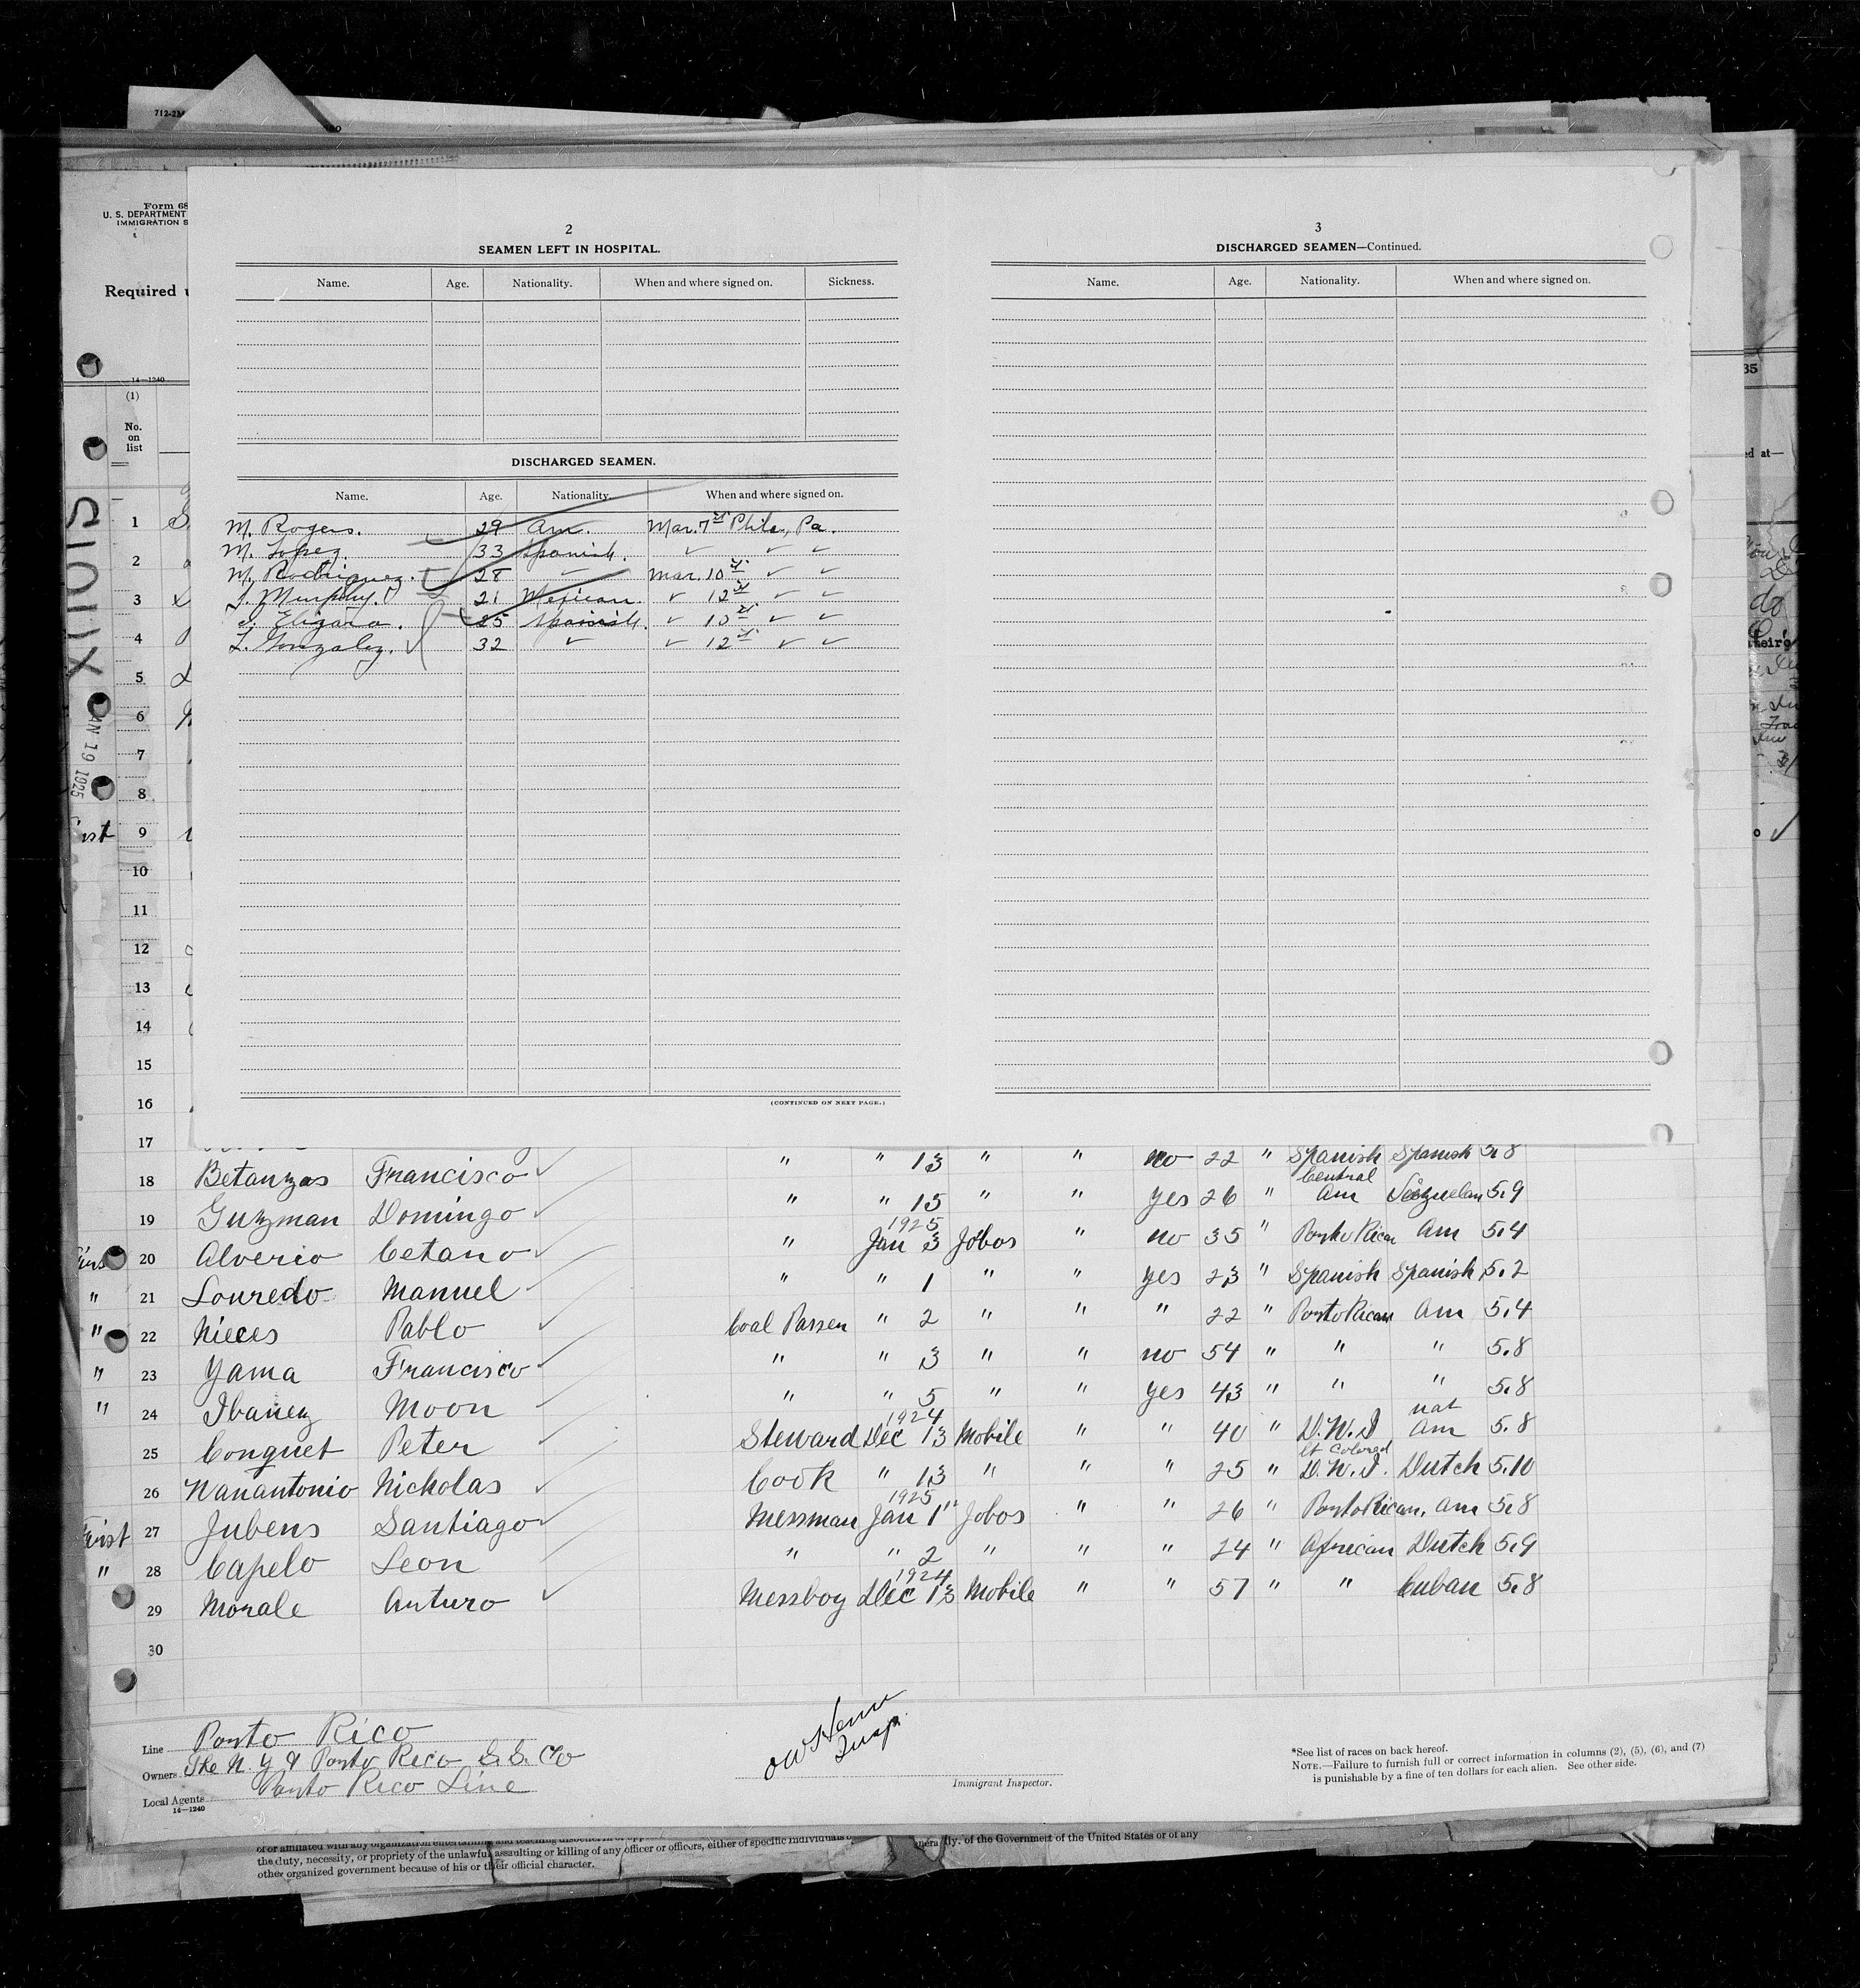 712-2M
Form 68
U. S. DEPARTMENT
IMMIGRATION S
Required
14—1240
(1)
No.
on
list
SIOUX
JAN 19 1925
2
SEAMEN LEFT IN HOSPITAL.
Name. Age. Nationality. When and where signed on. Sickness.
DISCHARGED SEAMEN.
Name. Age. Nationality. When and where signed on.
M. Rogers. 29 Am. Mar. 7 Phila, Pa.
M. Lopez. 33 Spanish. ✓ ✓ ✓
M. Rodriguez. 28 ✓ Mar. 10 ✓ ✓
Murphy. 21 Mexican. ✓ 12 ✓ ✓
25 Spanish. ✓ 10 ✓ ✓
L. Gonzalez. 32 ✓ ✓ 12 ✓ ✓
(CONTINUED ON NEXT PAGE.)
3
DISCHARGED SEAMEN—Continued.
Name. Age. Nationality. When and where signed on.
35
ed at—
do
1
2
3
4
5
6
7
8
9
10
11
12
13
14
15
16
17
18 Betanzas Francisco ✓ " " 13 " " no 22 " Spanish Spanish 5.8
19 Guzman Domingo ✓ " " 15 " " yes 26 " Central Am 5.9
20 Alverio Cetano ✓ " 1925 Jan 3 Jobos " no 35 " Porto Rican Am 5.4
" 21 Louredo Manuel ✓ " " 1 " " yes 23 " Spanish Spanish 5.2
" 22 Nieces Pablo ✓ Coal Passer " 2 " " " 22 " Porto Rican Am 5.4
" 23 Yama Francisco ✓ " " 3 " " no 54 " " " 5.8
" 24 Ibanez Moon ✓ " " 5 " " yes 43 " " " 5.8
25 Conquet Peter ✓ Steward 1924 Dec 13 Mobile " " 40 " D.W.I nat Am 5.8
26 Wanantonio Nicholas ✓ Cook " 13 " " " 25 " lt Colored D.W.I. Dutch 5.10
First 27 Jubens Santiago ✓ Messman 1925 Jan 1 Jobos " " 26 " Porto Rican. Am 5.8
" 28 Capelo Leon " " 2 " " " 24 " African Dutch 5.9
29 Morale Arturo ✓ Messboy 1924 Dec 13 Mobile " " 57 " " Cuban 5.8
30
Line Porto Rico
Owners The N. Y & Porto Rico S.S. Co
Local Agents Porto Rico Line
14—1240
Insp.
Immigrant Inspector.
*See list of races on back hereof.
NOTE.—Failure to furnish full or correct information in columns (2), (5), (6), and (7)
is punishable by a fine of ten dollars for each alien. See other side.
the duty, necessity, or propriety of the unlawful assaulting or killing of any officer or officers, either of specific individuals of the Government of the United States or of any
other organized government because of his or their official character.